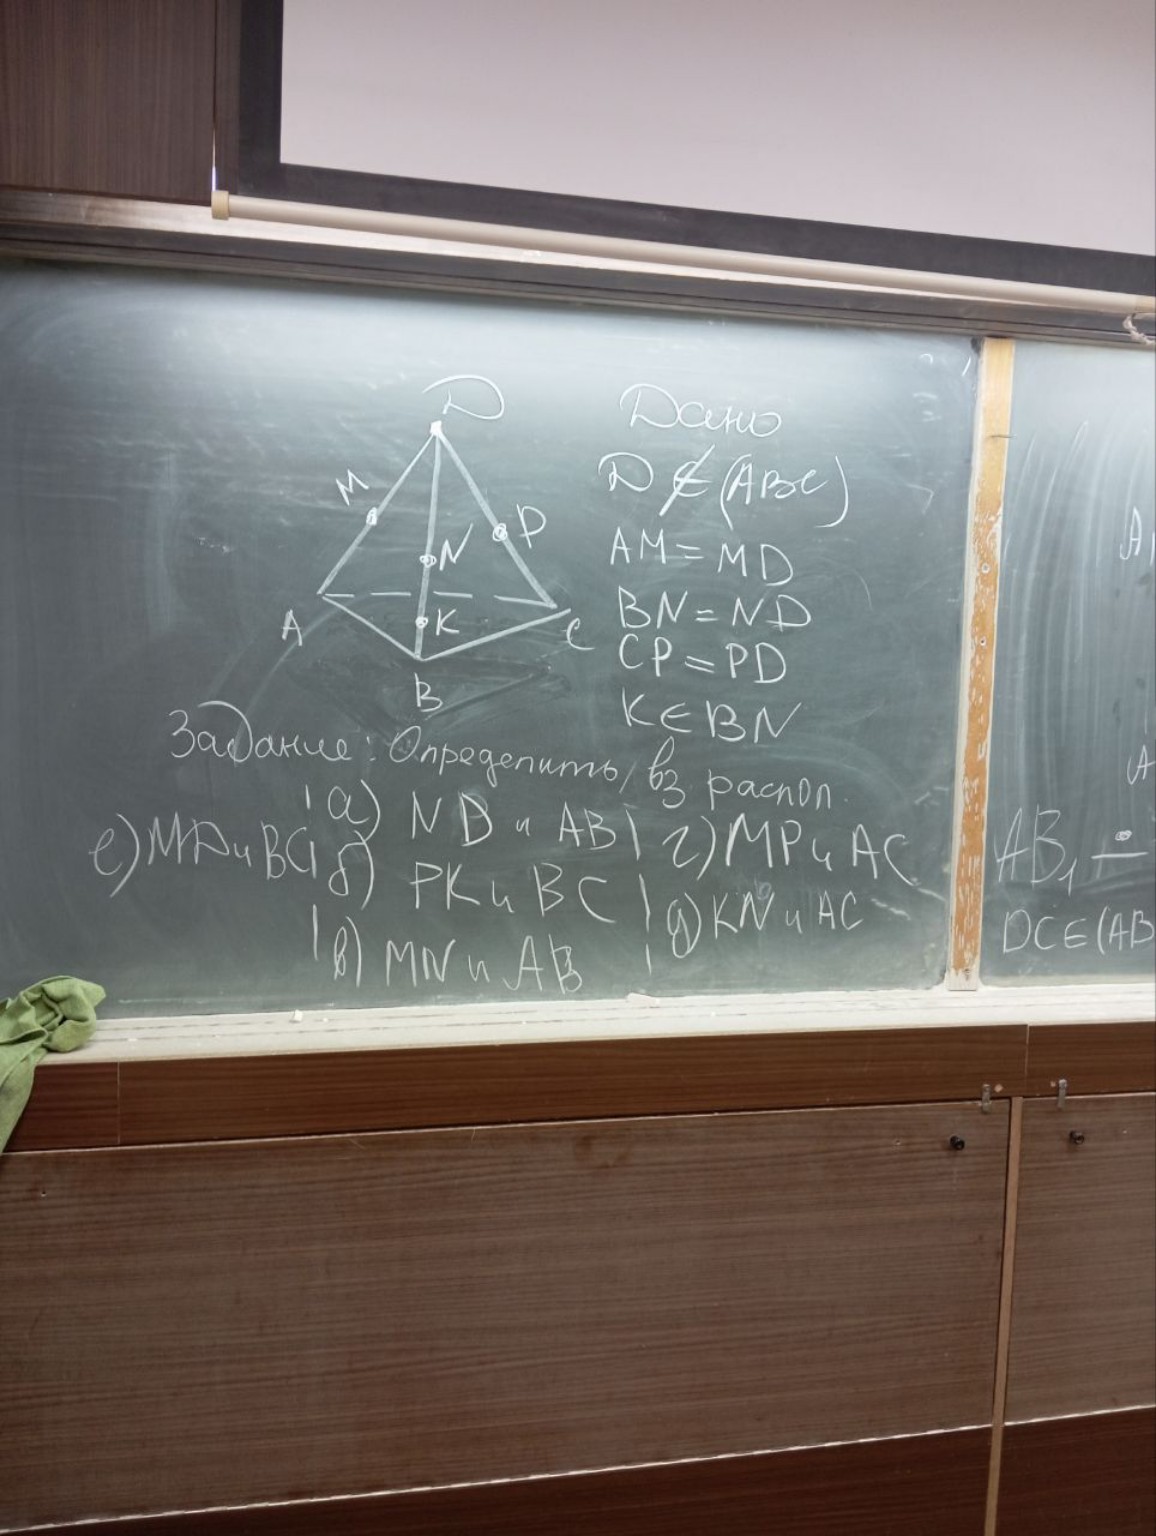 D
M
N
P
A
K
C
B
Дано
D ∉ (ABC)
AM = MD
BN = ND
CP = PD
K ∈ BN
Задание: Определить вз распол.
а) ND и AB
г) MP и AC
е) MD и BC
б) PK и BC
д) KN и AC
в) MN и AB
A
AB₁
DC ∈ (AB